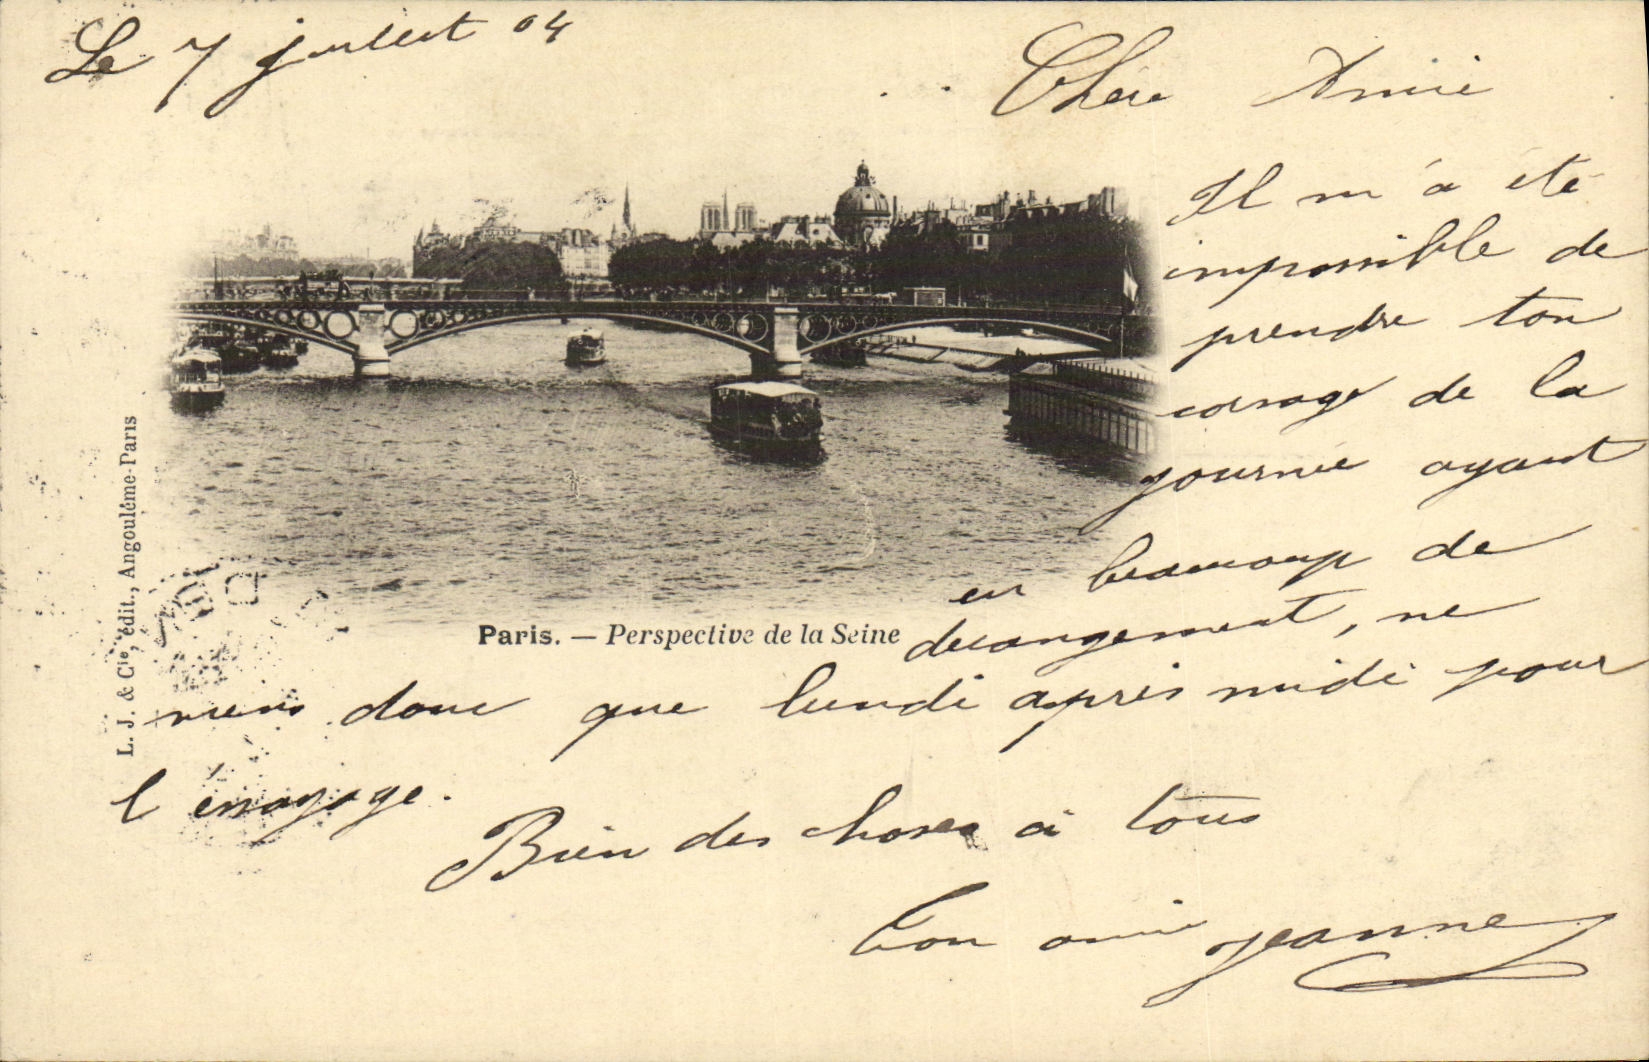 Le 7 juillet 04
Chère Amie
Il m'a été
impossible de
prendre ton
corsage de la
journée ayant
eu beaucoup de
derangement, ne
viens donc que lundi après midi pour
l'éssayage.
Bien des choses à tous
Ton amie Jeanne
Paris. — Perspective de la Seine
L. J. & Cie, édit., Angoulême-Paris